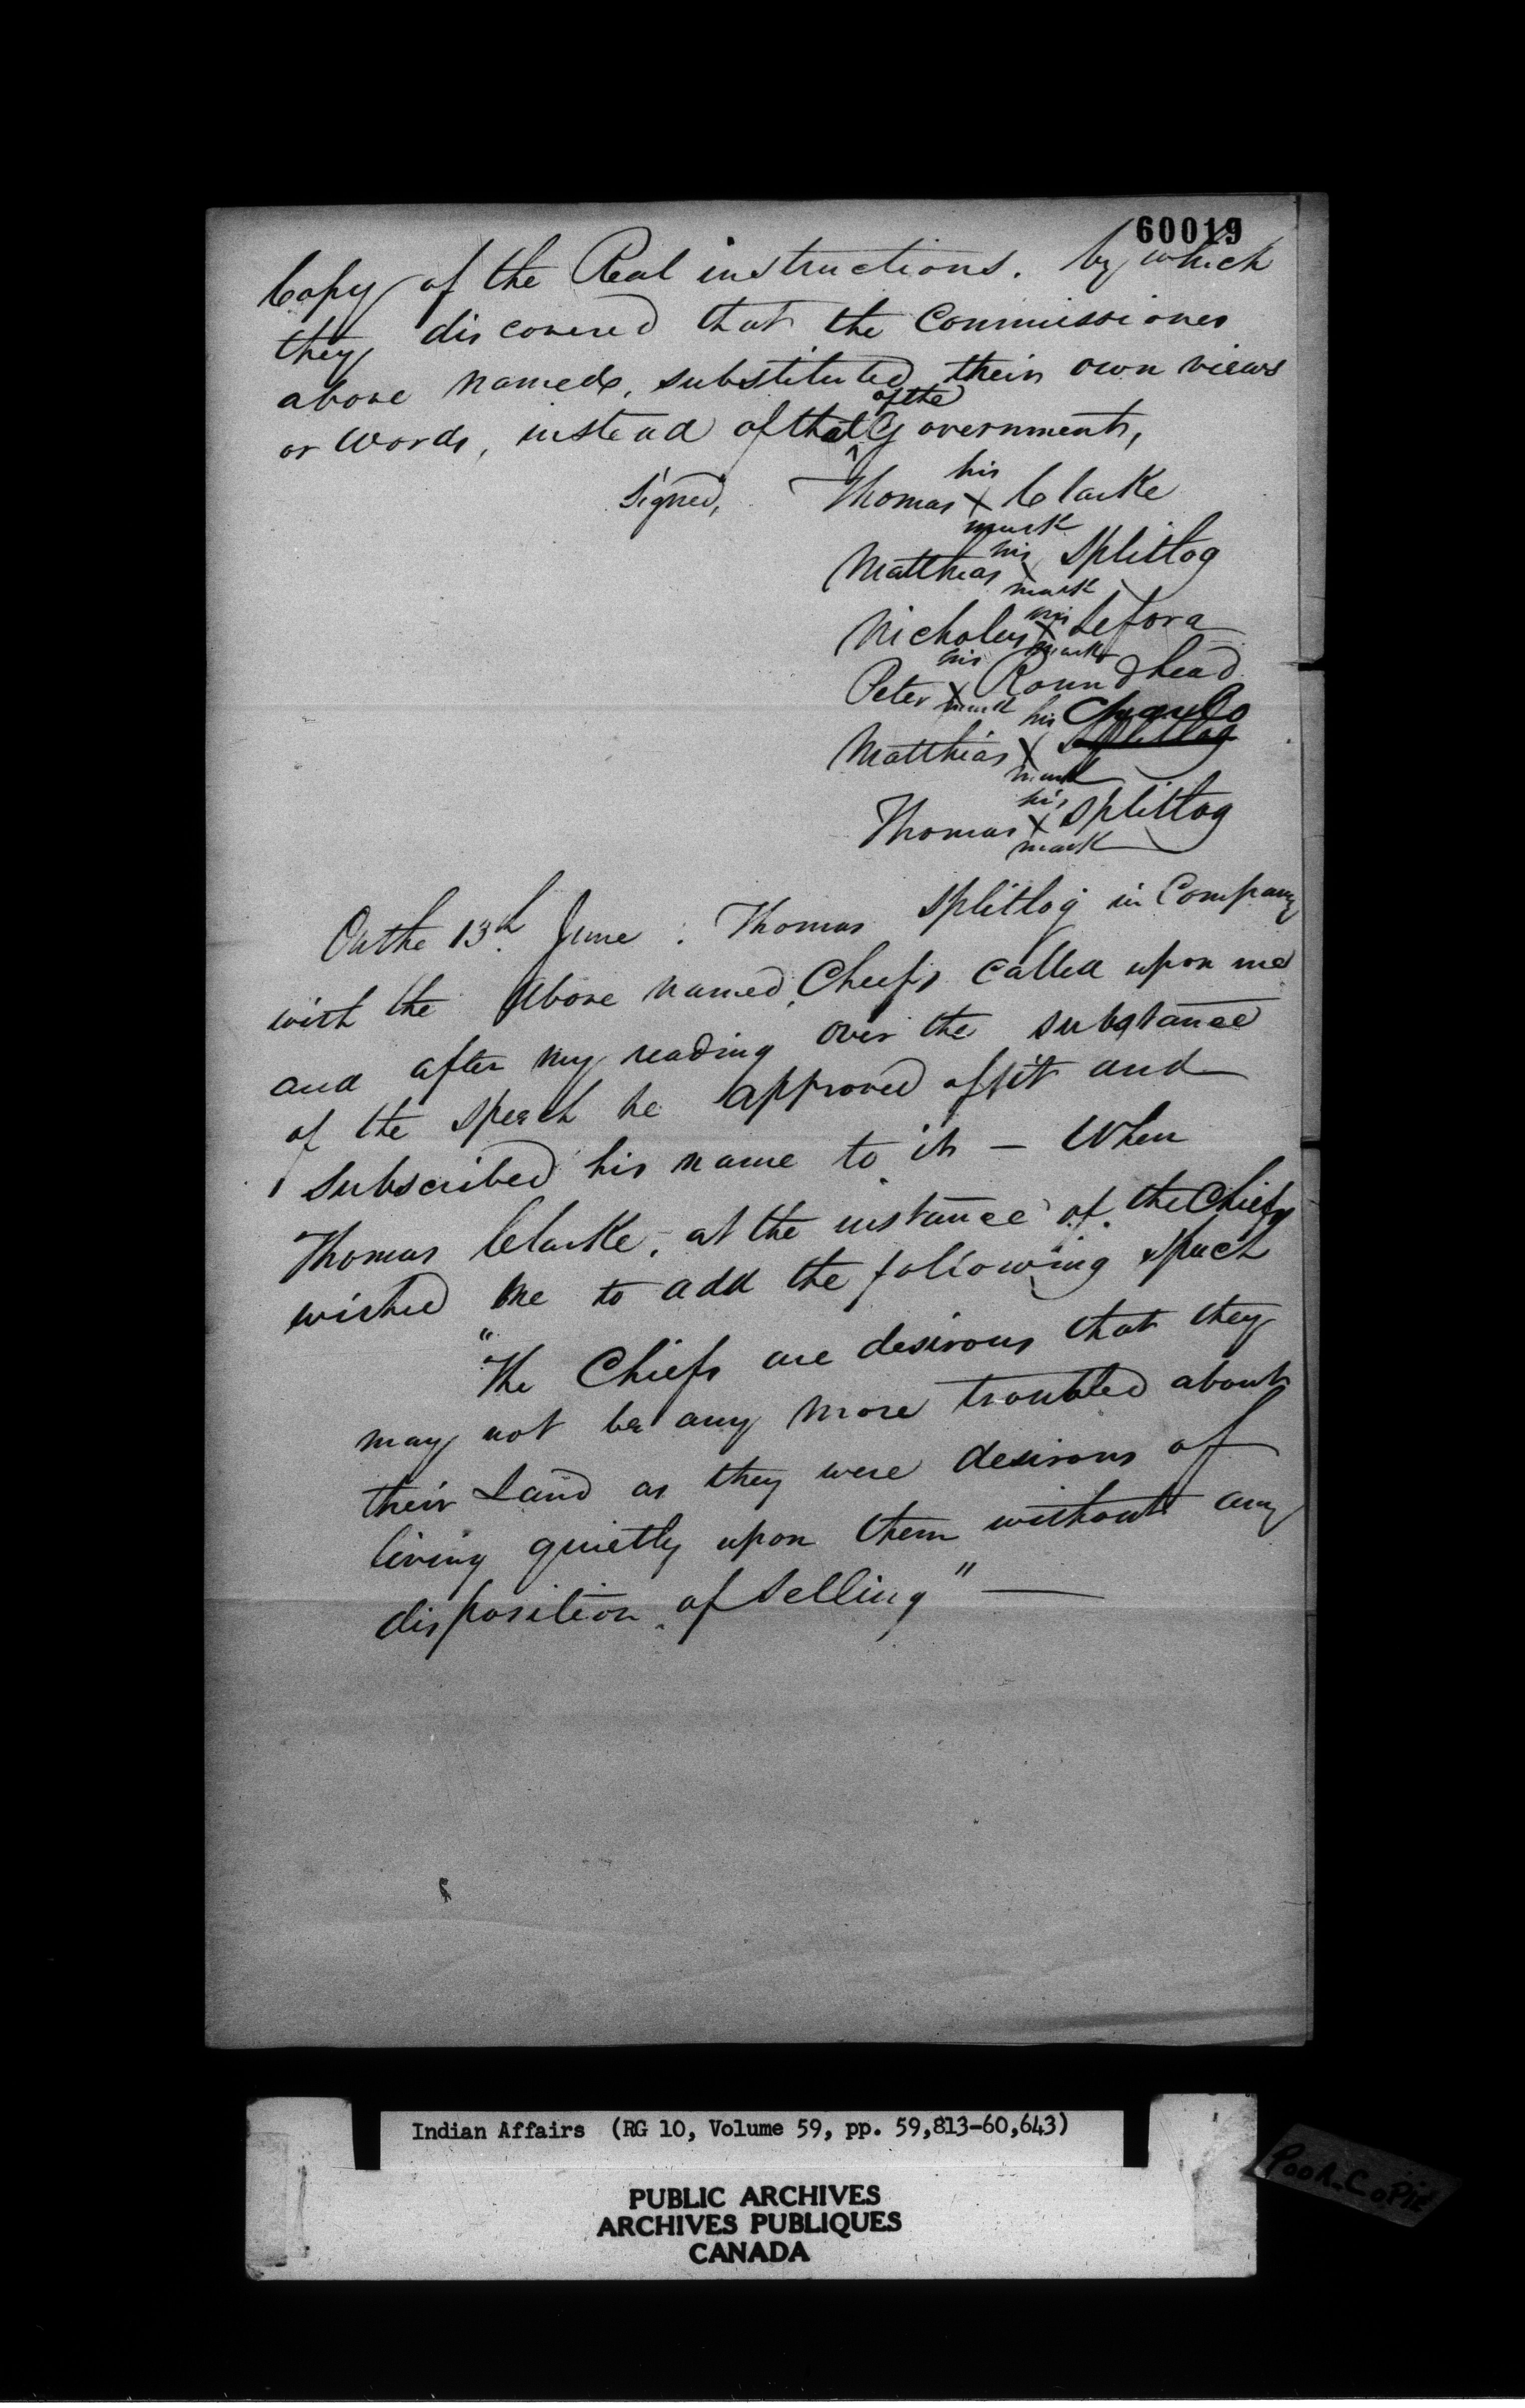 60019
Copy of the Real instructions. by which
they discovered that the Commissiones
above named, substituted their own views
of the
or words, instead of that Government,
Signed,
his
Thomas X Clarke
mark
his
Matthias X Splitlog
mark
his
Nicholas X Lefora
mark
his
Peter X Roundhead
mark
his Charlo
Matthias X Splitlog
mark
his
Thomas X Splitlog
mark
On the 13th June. Thomas Splitlog in Company
with the above named Chiefs called upon me
and after my reading over the substance
of the speech he approved of it and
subscribed his name to it - When
Thomas Clarke, at the instance of the Chiefs
wished me to add the following speech
"The Chiefs are desirous that they
may not be any more troubled about
their Land as they were desirous of
living quietly upon them without any
disposition of selling" —
Indian Affairs (RG 10, Volume 59, pp. 59,813-60,643)
PUBLIC ARCHIVES
ARCHIVES PUBLIQUES
CANADA
POOR COPIE